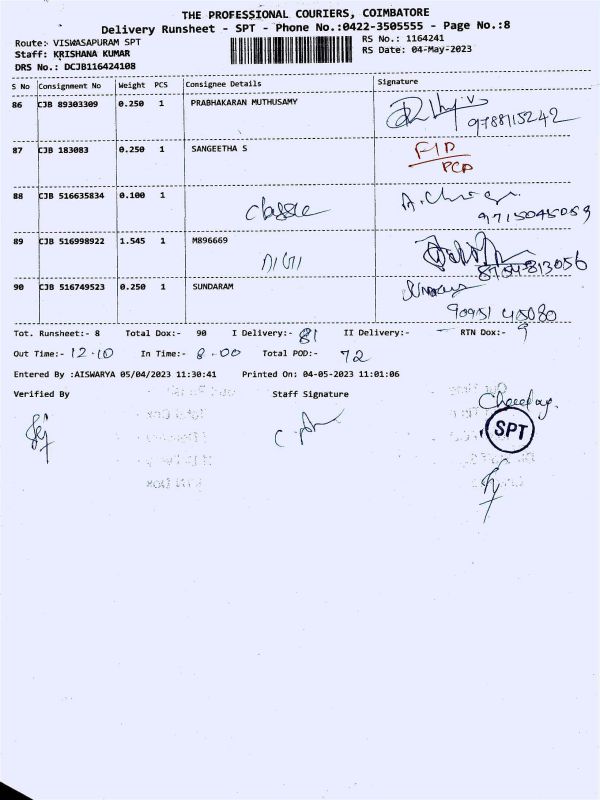 THE PROFESSIONAL COURIERS, COIMBATORE
Delivery Runsheet - SPT - Phone No.:0422-3505555 - Page No.:8
Route: VISWASAPURAM SPT
RS No.: 1164241
Staff: KRISHANA KUMAR
RS Date: 04-May-2023
DRS No.: DCJB116424108
S No Consignment No Weight PCS Consignee Details Signature
86 CJB 89303309 0.250 1 PRABHAKARAN MUTHUSAMY
9788115242
87 CJB 183083 0.250 1 SANGEETHA S
88 CJB 516635834 0.100 1 classic
9715045059
89 CJB 516998922 1.545 1 M896669
90 CJB 516749523 0.250 1 SUNDARAM
90951 45080
Tot. Runsheet:- 8 Total Dox:- 90 I Delivery:- 81 II Delivery:- — RTN Dox:- 9
Out Time:- 12.10 In Time:- 8.00 Total POD:- 72
Entered By :AISWARYA 05/04/2023 11:30:41 Printed On: 04-05-2023 11:01:06
Verified By Staff Signature
SPT